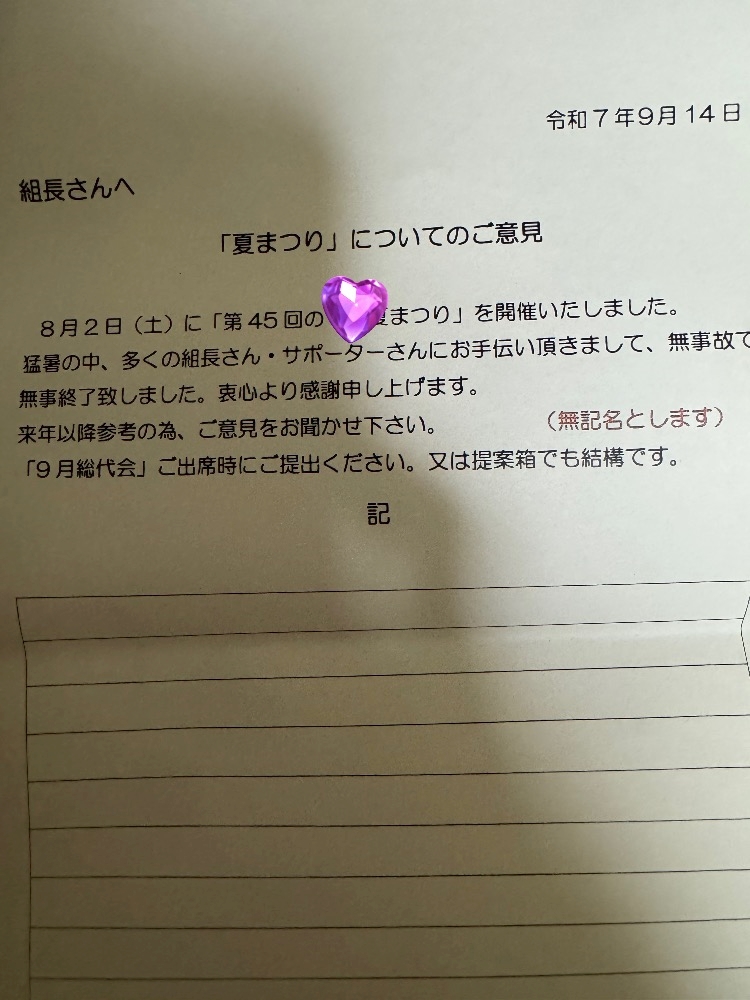 令和7年9月14日
組長さんへ
「夏まつり」についてのご意見
8月2日（土）に「第45回の夏まつり」を開催いたしました。
猛暑の中、多くの組長さん・サポーターさんにお手伝い頂きまして、無事故で
無事終了致しました。衷心より感謝申し上げます。
来年以降参考の為、ご意見をお聞かせ下さい。（無記名とします）
「9月総代会」ご出席時にご提出ください。又は提案箱でも結構です。
記